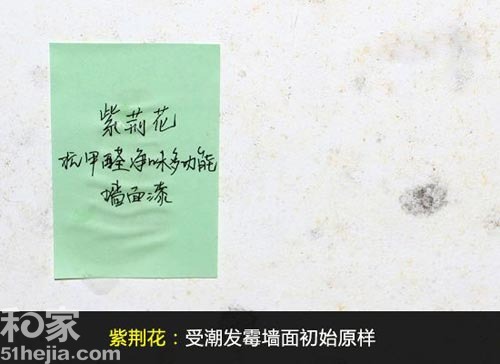 紫荆花
抗甲醛净味多功能
墙面漆
和家
51hejia.com
紫荆花：受潮发霉墙面初始原样